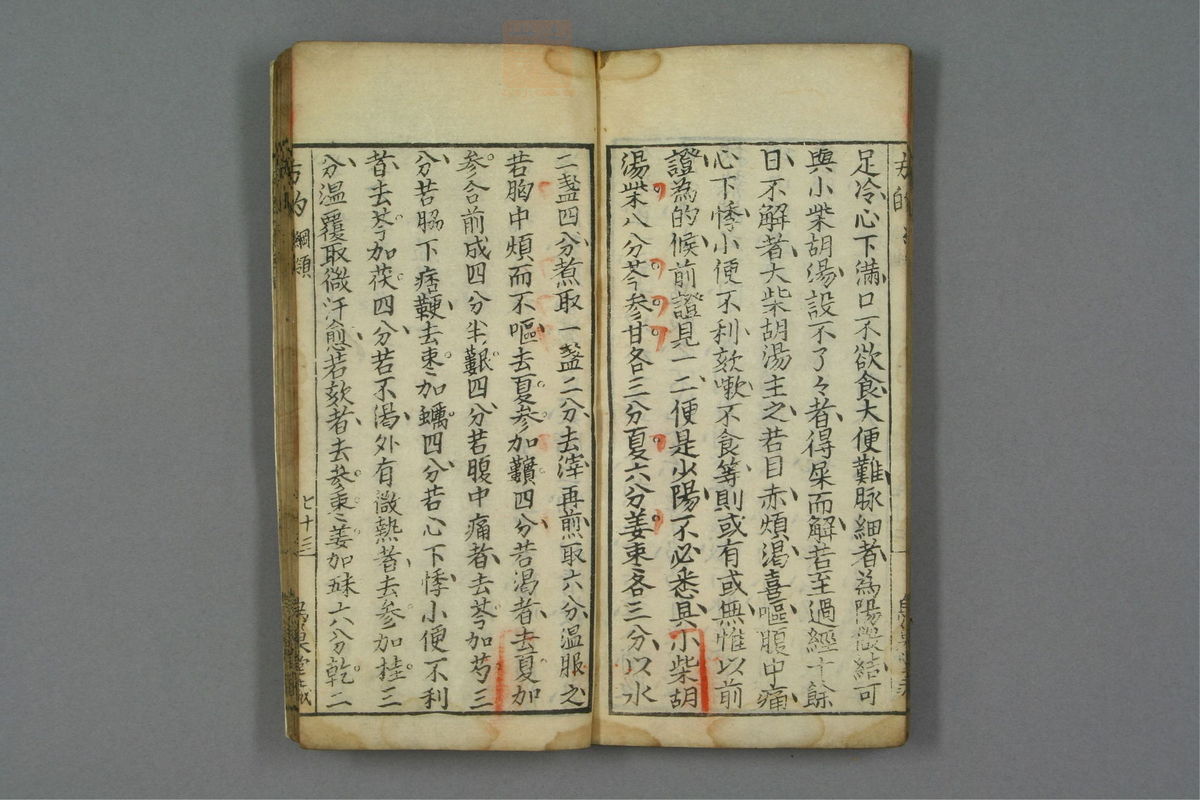 足冷心下滿口不欲食大便難脉細者為陽微結可
與小柴胡湯設不了々者得屎而解若至過經十餘
日不解者大柴胡湯主之若目赤煩渴喜嘔腹中痛
心下悸小便不利欬嗽不食等則或有或無惟以前
證為的候前證見一二便是少陽不必悉具小柴胡
湯柴八分芩参甘各三分夏六分姜枣各三分以水
二盞四分煮取一盞二分去滓再煎取六分温服之
若胸中煩而不嘔去夏参加蔞四分若渴者去夏加
参合前成四分半蔞根四分若腹中痛者去芩加芍三
分若脇下痞鞕去枣加蠣四分若心下悸小便不利
者去芩加茯四分若不渴外有微熱者去参加桂三
分温覆取微汗愈若欬者去参枣姜加味六分乾二
方的
綱類
七十三